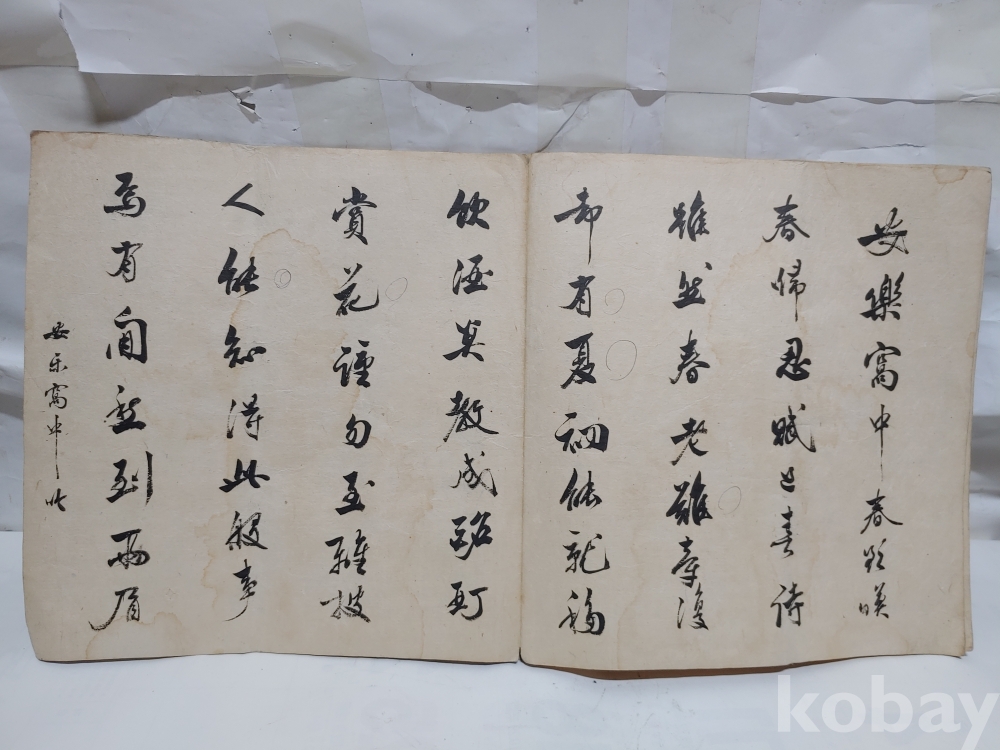 安樂窩中春欲歸
春歸忍賦送春詩
雖然春老難牽復
却有夏初能就移
飲酒莫教成酩酊
賞花謹勿至離披
人能知得此般事
焉有閒愁到兩眉
安乐窩中吟
kobay